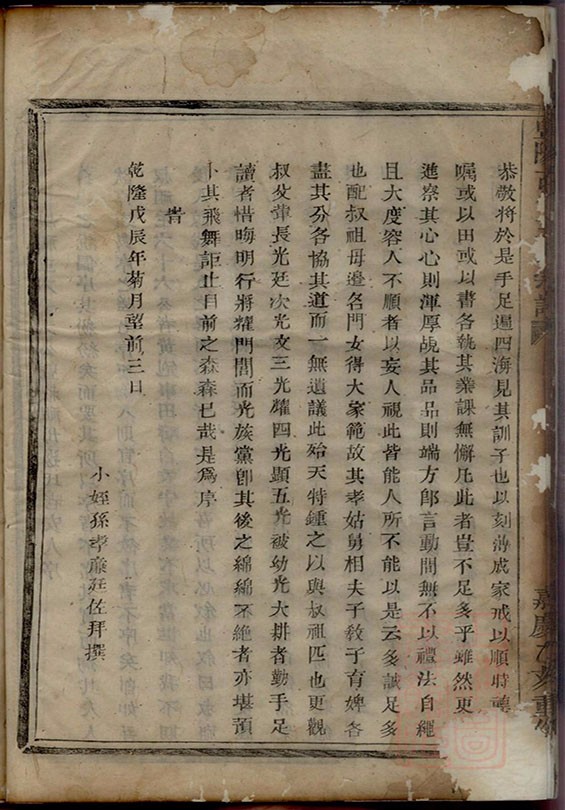 恭敬將於是手足遍四海見其訓子也以刻薄成家戒以順時聽
囑或以田或以書各執其業課無懈凡此者豈不足多乎雖然更
進察其心心則渾厚覘其品品則端方郎言動間無不以禮法自繩
且大度容人不順者以妄人視此皆能人所不能以是云多誠足多
也配叔祖母邉名門女得大家範故其孝姑舅相夫子敎子育婢各
盡其分各協其道而一無遺議此殆天特鍾之以與叔祖匹也更觀
叔父輩長光廷次光交三光耀四光顯五光被幼光大耕者勤手足
讀者惜晦明行將耀門閭而光族黨卽其後之綿綿不絶者亦堪預
卜其飛舞詎止目前之森森已哉是爲序
旹
乾隆戊辰年菊月望前三日
小姪孫孝蔗廷佐拜撰
嘉慶乙亥重